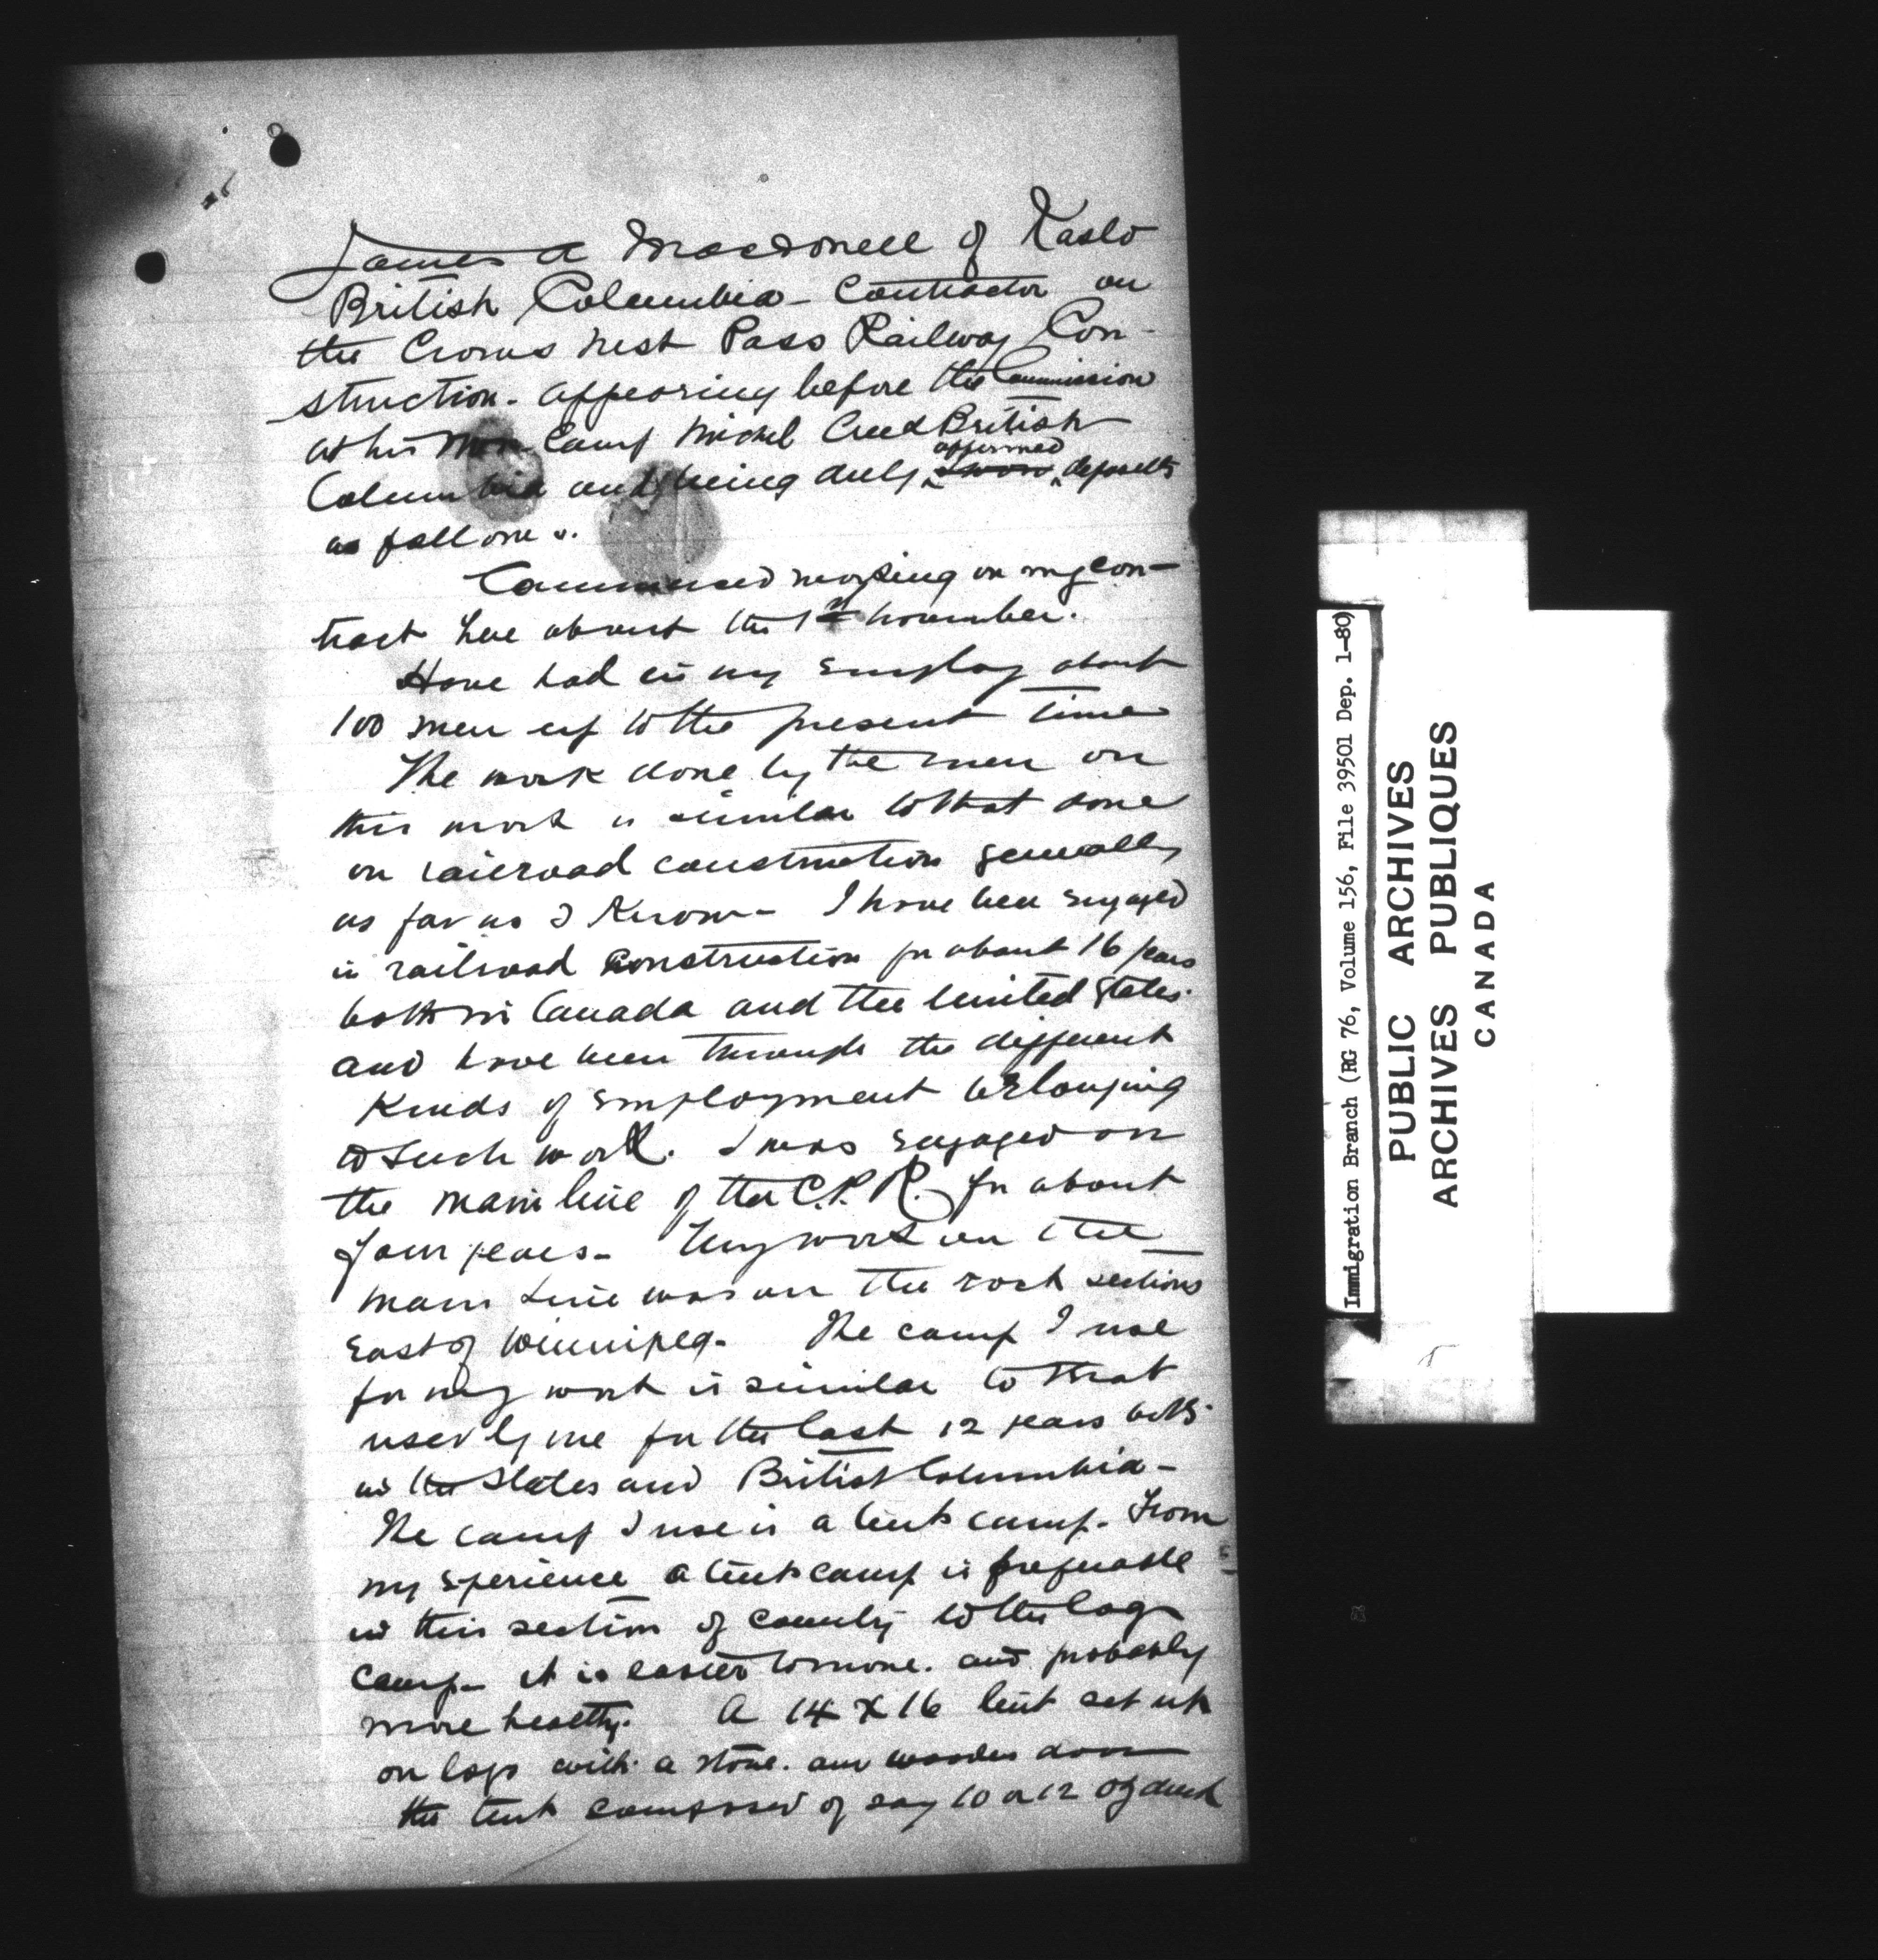 James A Macdonell of Kaslo
British Columbia - Contractor on
the Crows Nest Pass Railway Con-
struction. appearing before the Commission
at his Camp Michel Creek British
affirmed
Columbia and being duly sworn deposeth
as follows.
Commenced working on my con-
tract here about the 1st November.
Have had in my employ about
100 men up to the present time
The work done by the men on
this work is similar to that done
on railroad construction generally
as far as I know - I have been engaged
in railroad construction for about 16 years
both in Canada and the United States.
and have been through the different
Kinds of employment belonging
to such work. I was engaged on
the main line of the C.P.R. for about
four years - My work on the
main Line was on the rock sections
East of Winnipeg. The camp I use
for my work is similar to that
used by me for the last 12 years both
in the States and British Columbia -
The camp I use is a tent camp. From
my experience a tent camp is preferable
in this section of country to the log
camp - it is easier to move. and probably
more healthy. A 14 X 16 tent set up
on logs with a stove. and wooden door
the tent composed of say 10 or 12 oz duck
Immigration Branch (RG 76, Volume 156, File 39501 Dep. 1-80)
PUBLIC ARCHIVES
ARCHIVES PUBLIQUES
CANADA